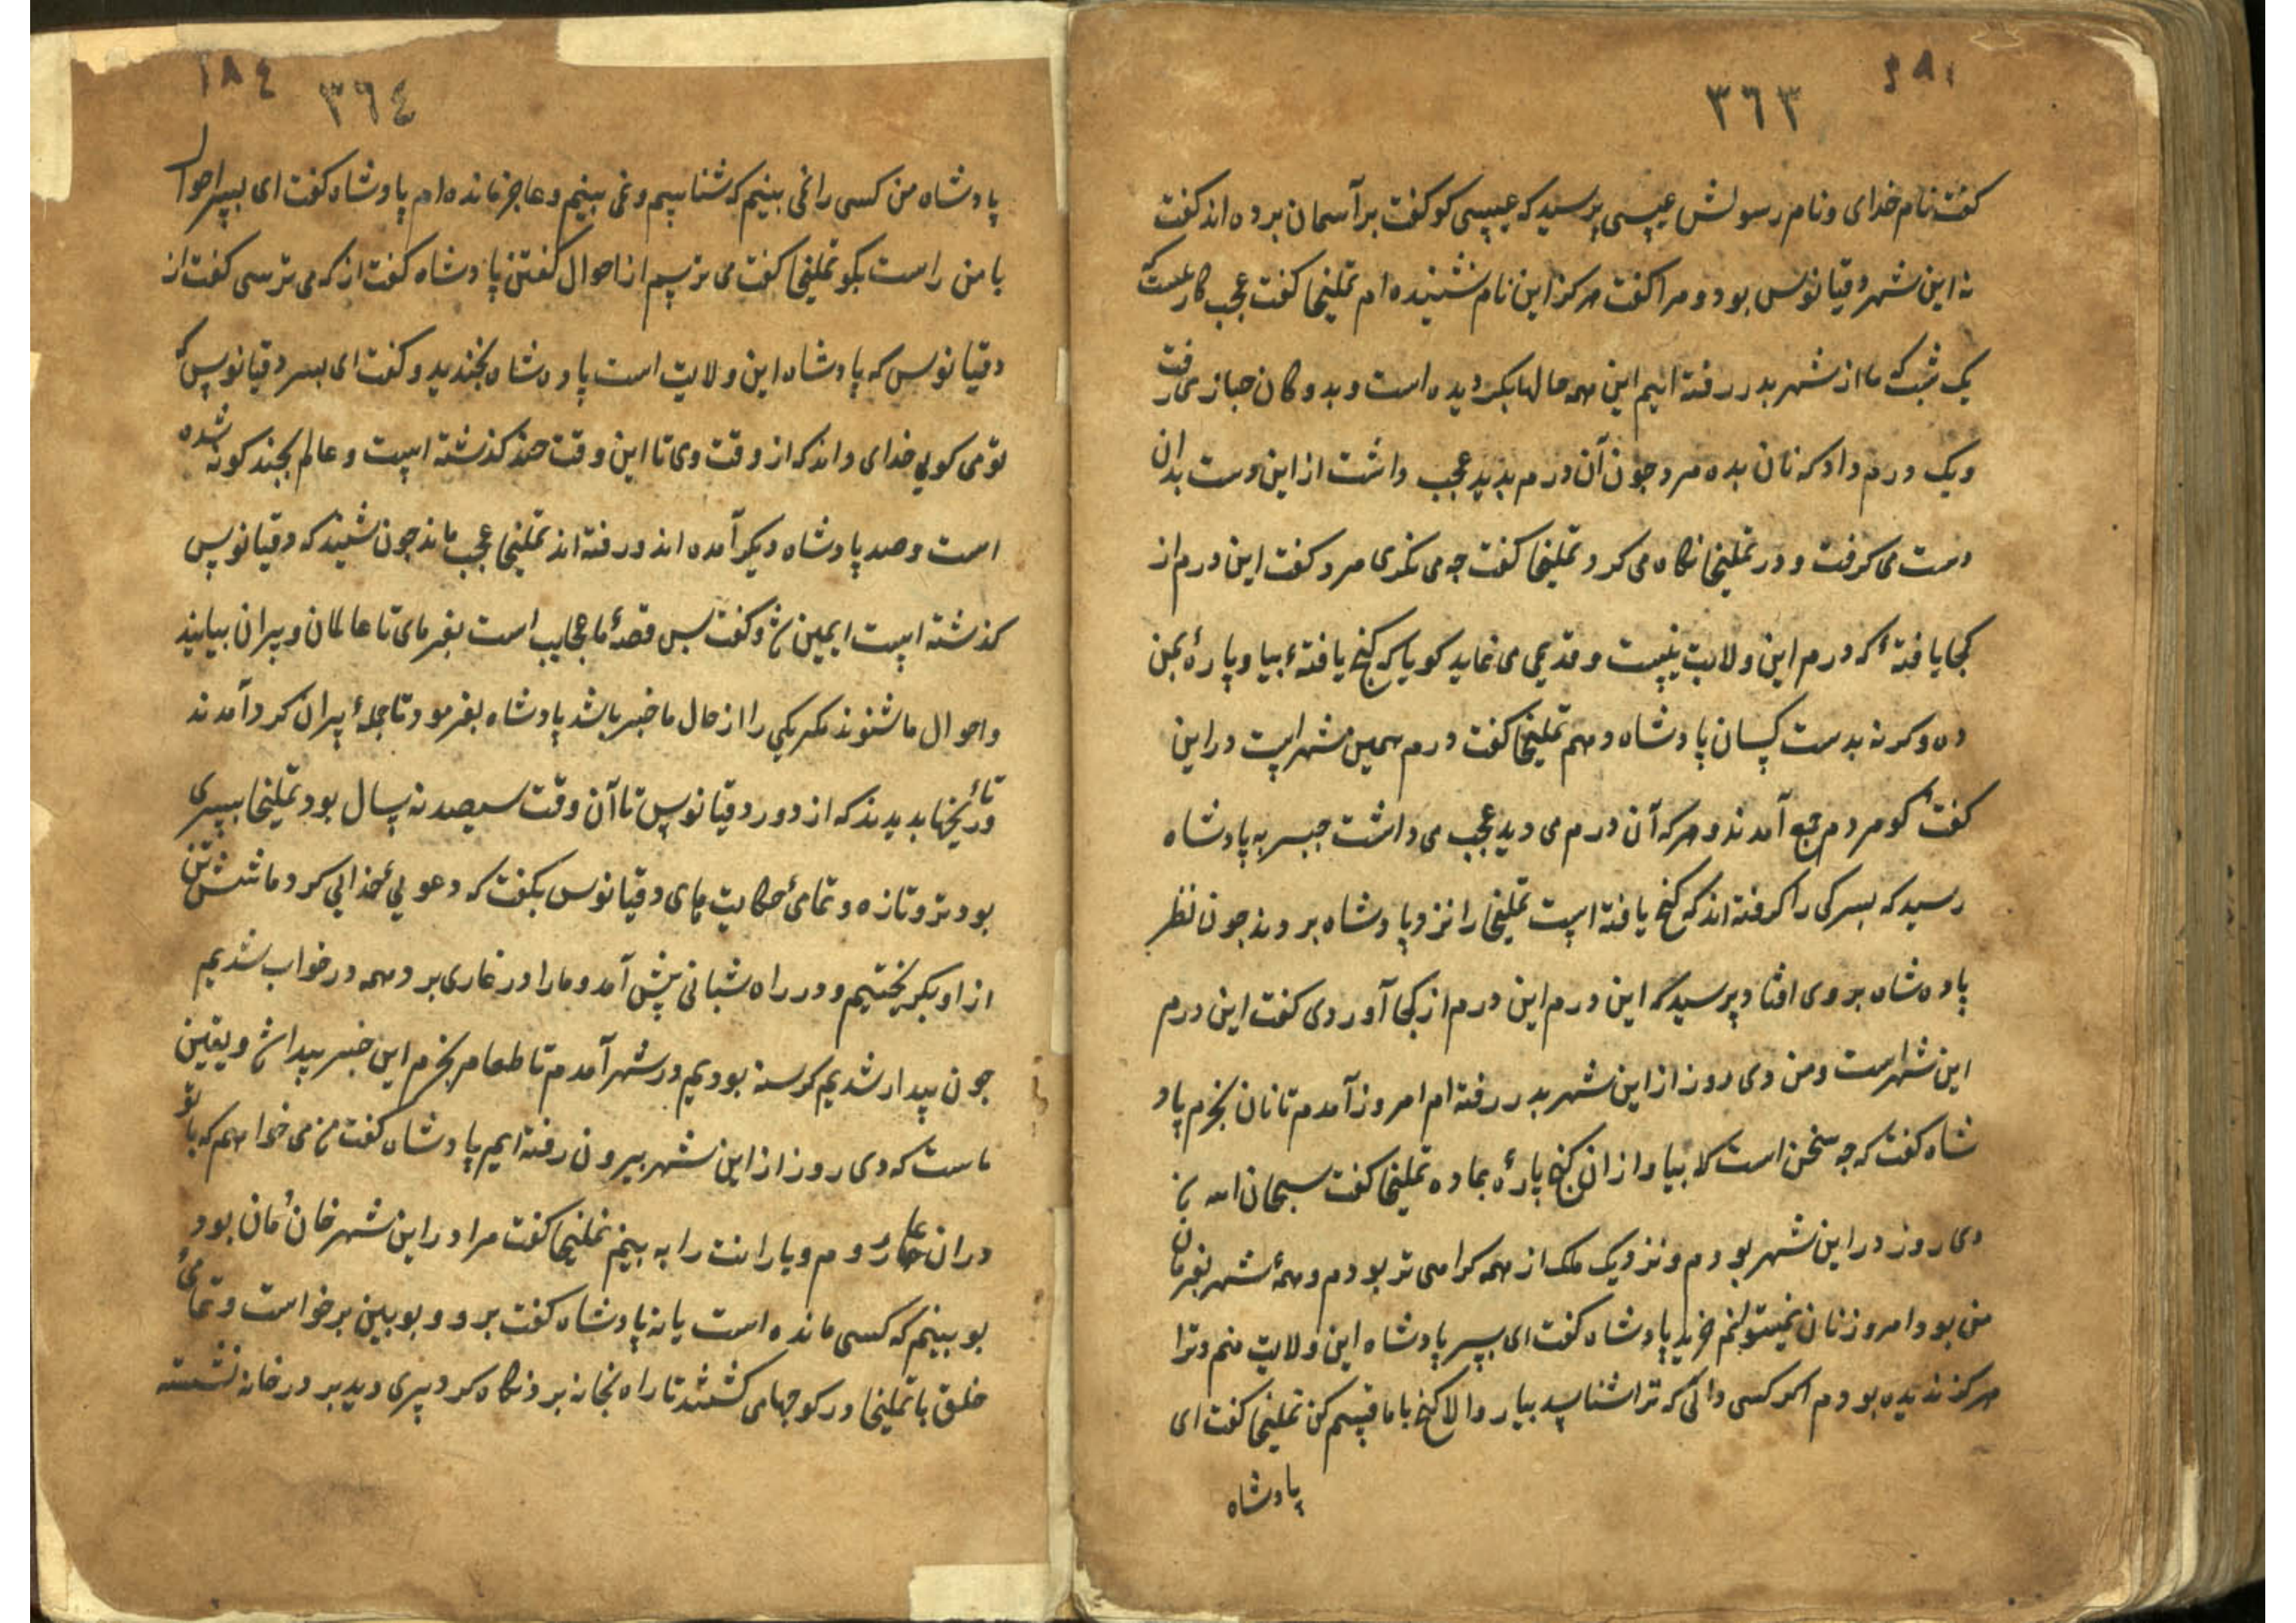 ٣٦٣
گفت نام خدای و نام رسولش عیسی پرسید که عیسی کو گفت بر آسمان برده اند گفت
نه این شهر دقیانوس بود و مرا گفت هرگز این نام نشنیده ام تملیخا گفت عجب کاریست که
یک شب که ما از شهر بدر رفته ایم این همه حالها بگردیده است و بدوکان خبازی رفت
ویک درم داد که نان بده مرد جون آن درم بدید عجب داشت از این دست بدان
دست می گرفت و در تملیخا نگاه می کرد تملیخا گفت جه می نگری مرد گفت این درم از
کجا یافتهٔ که درم این ولایت نیست و قدیمی می نماید گویا که گنج یافتهٔ بیا و پارهٔ بمن
ده وگرنه بدست کسان پادشاه دهم تملیخا گفت درم همین شهر است در این
گفت گو مردم جمع آمدند و هرکه آن درم می دید عجب می داشت خبر به پادشاه
رسید که پسرکی را گرفته اند که گنج یافته است تملیخا را نزد پادشاه بردند جون نظر
پادشاه بروی افتاد پرسید که این درم این درم از کجا آوردی گفت این درم
این شهر است ومن دی روز از این شهر بدر رفته ام امروز آمدم تا نان بخرم پاد
شاه گفت که جه سخن است که بیا و از ان گنج پارهٔ بما ده تملیخا گفت سبحان الله
دی روز در این شهر بودم و نزدیک ملک از همه گرامی تر بودم و همهٔ شهر بفرمان
من بود امروز نان نمیتوانم خرید پادشاه گفت ای پسر پادشاه این ولایت منم و ترا
هرگز ندیده بودم اگر کسی دانی که ترا شناسد بیار والا گنج با ما قسم کن تملیخا گفت ای
پادشاه
١٨٤ ٣٦٤
پادشاه من کسی را نمی بینیم که شناسیم و نمی بینیم و عاجز مانده ام پادشاه گفت ای پسر احوال
با من راست بگو تملیخا گفت می ترسم از احوال گفتن پادشاه گفت از که می ترسی گفت از
دقیانوس که پادشاه این ولایت است پادشاه بخندید و گفت ای پسر دقیانوس که
تو می گویی خدای داند که از وقت وی تا این وقت چند گذشته است و عالم بچند گونه شده
است وصد پادشاه دیگر آمده اند و رفته اند تملیخا عجب ماند جون شنید که دقیانوس
گذشته است ایمن شد و گفت پس قصهٔ ما عجایب است بفرمای تا عالمان و پیران بیایند
و احوال ما شنوند مگر یکی را از حال ما خبر باشد پادشاه بفرمود تا جملهٔ پیران گرد آمدند
و تأریخها بدیدند که از دور دقیانوس تا آن وقت سیصد نه سال بود تملیخا پسری
بود تر و تازه و تمامیٔ حکایت های دقیانوس بگفت که دعوییٔ خدایی کرد ما شش تن
از او بگریختیم و در راه شبانی پیش آمد و ما را در غاری برد و همه در خواب شدیم
جون بیدار شدیم گرسنه بودیم در شهر آمدم تا طعام بخرم این خبر پیدا شد و یقین
ماست که دی روز از این شهر بیرون رفته ایم پادشاه گفت من می خواهم که با تو
در ان غار روم و یارانت را به بینم تملیخا گفت مرا در این شهر خان مان بود
بو بینم که کسی مانده است یا نه پادشاه گفت برو و بوبین برخواست و تمامیٔ
خلق با تملیخا در کوجهای گشتند تا راه بخانه برد نگاه کرد پیری دید بر در خانه نشسته